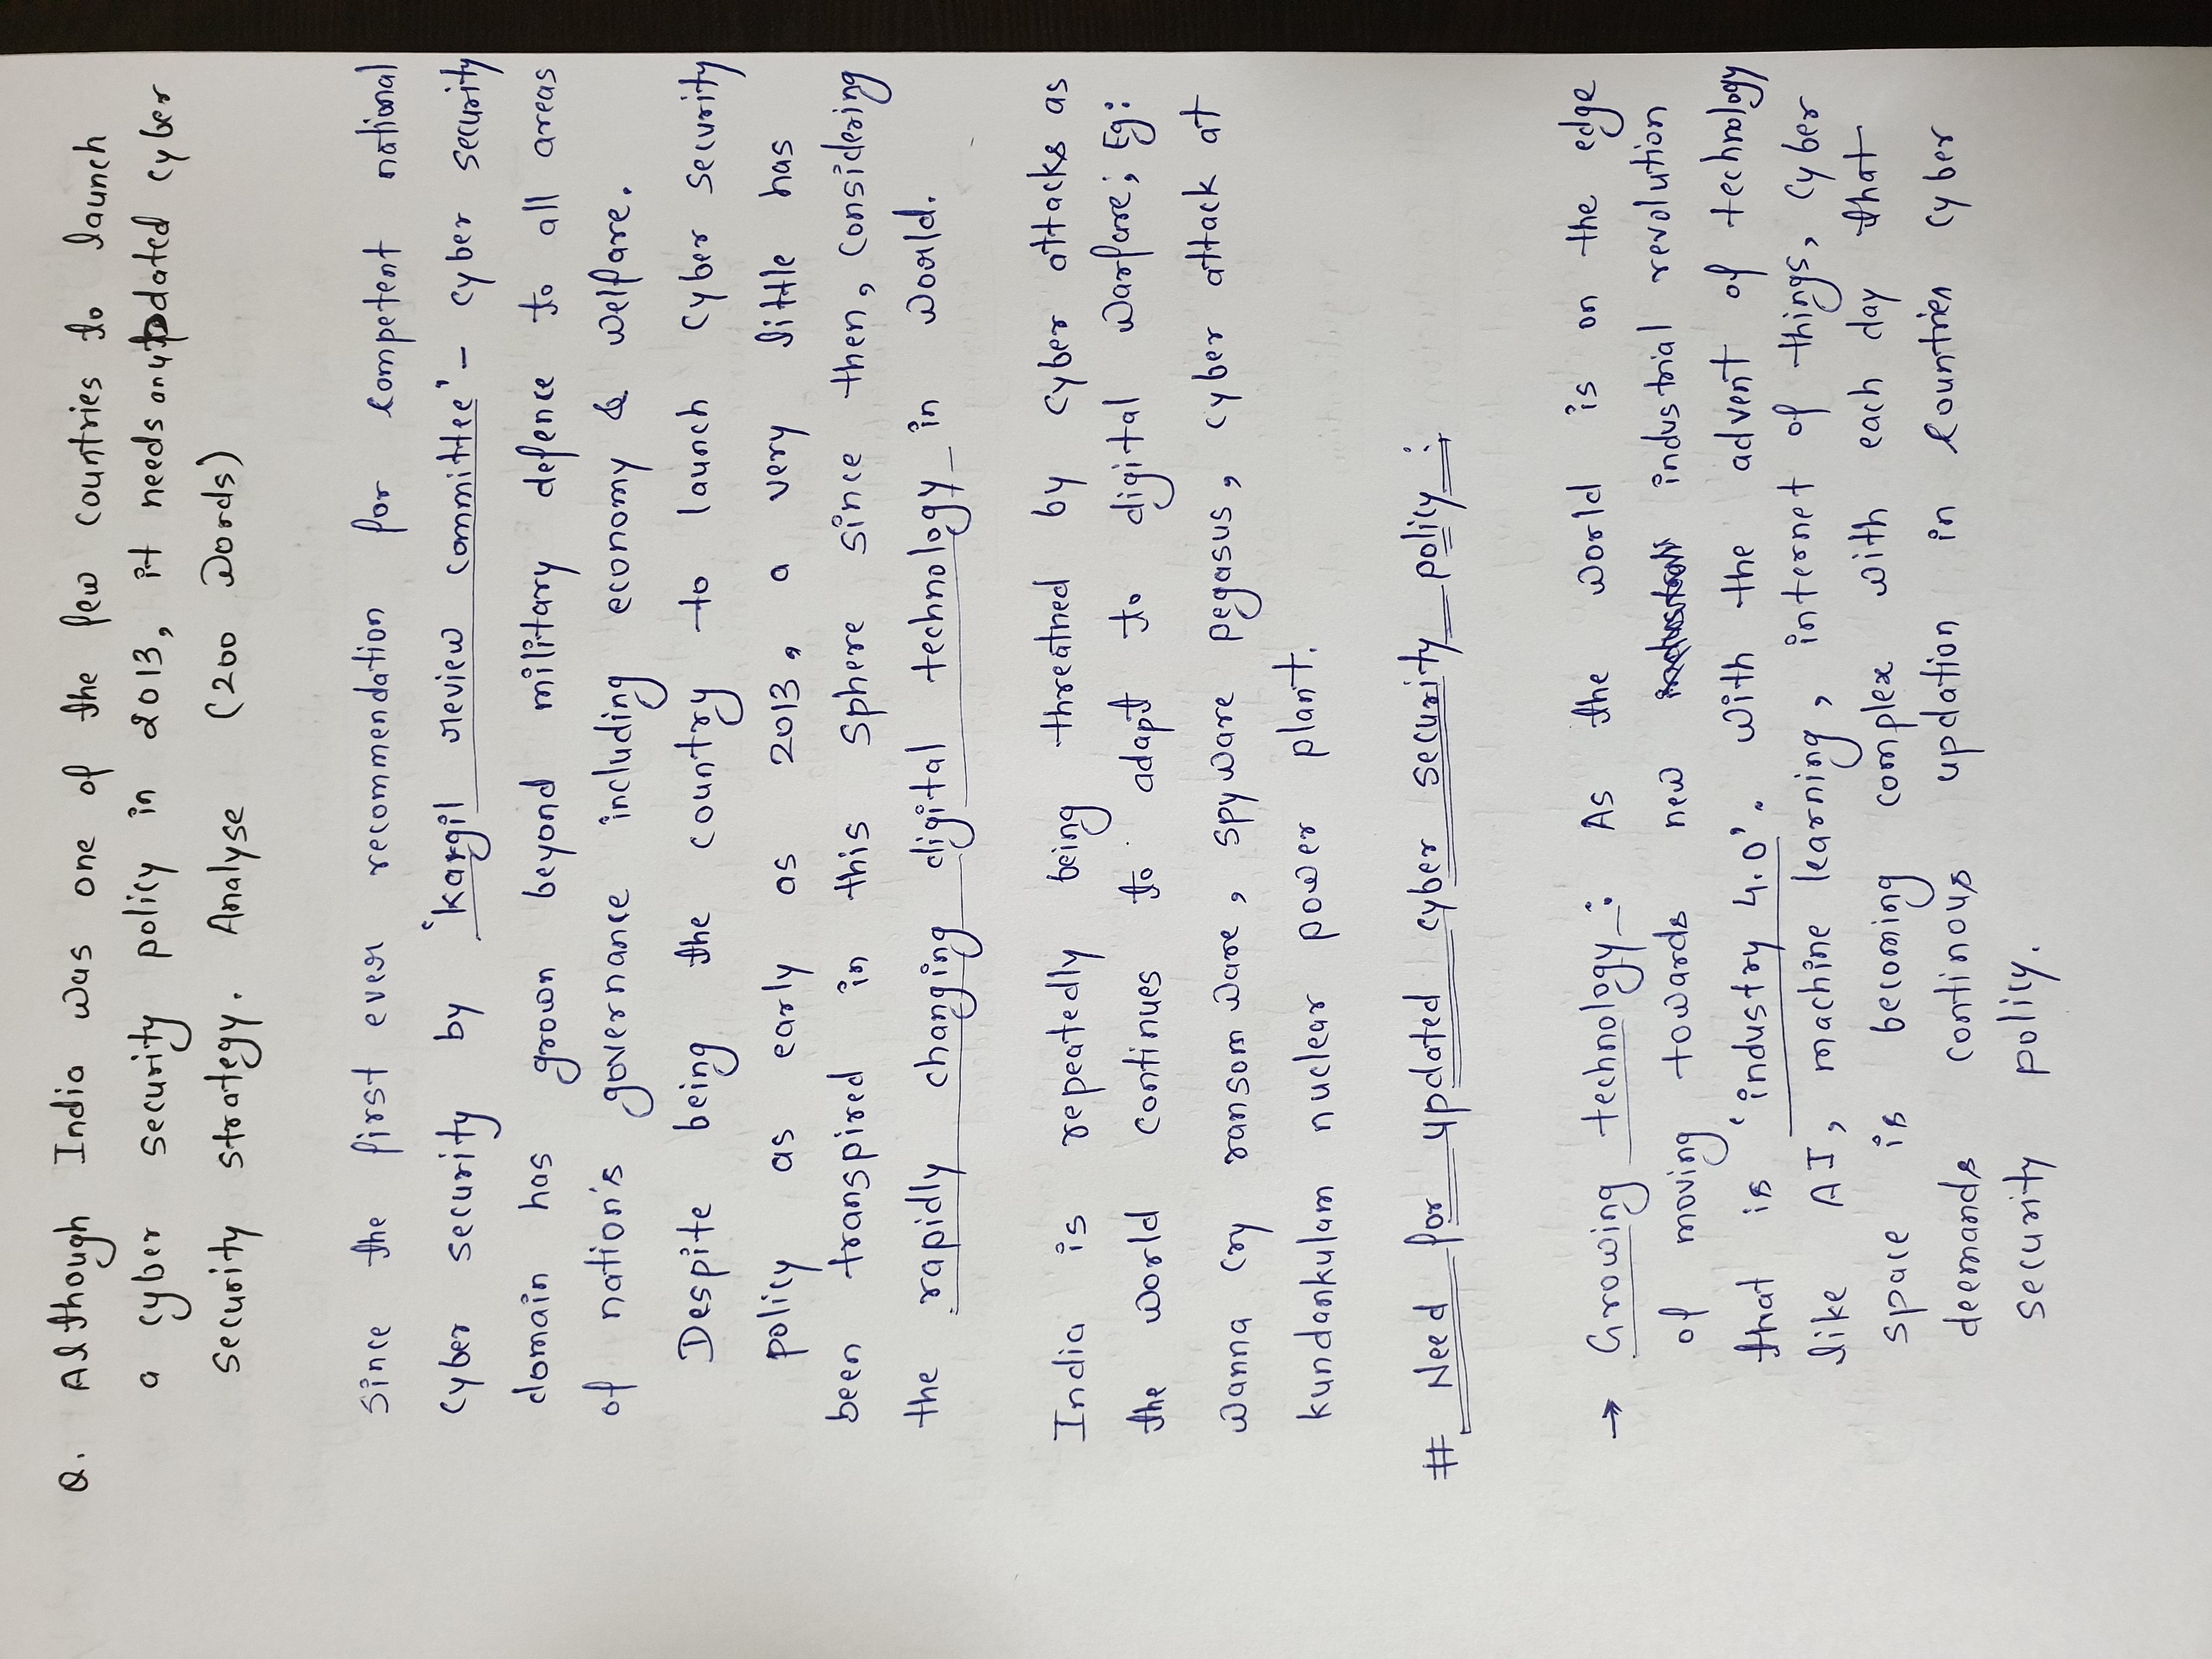 Q. Although India was one of the few countries to launch
a cyber security policy in 2013, it needs an updated cyber
security strategy. Analyse (200 words)
Since the first ever recommendation for competent national
cyber security by 'kargil review committee' - cyber security
domain has grown beyond military defence to all areas
of nation's governance including economy & welfare.
Despite being the country to launch cyber security
policy as early as 2013, a very little has
been transpired in this sphere since then, considering
the rapidly changing digital technology in world.
India is repeatedly being threatned by cyber attacks as
the world continues to adapt to digital warfare; Eg:
wanna cry ransomware, spyware pegasus, cyber attack at
kundankulam nuclear power plant.
# Need for updated cyber security policy :
→ Growing technology : As the world is on the edge
of moving towards new industrial revolution
that is 'industry 4.0'. with the advent of technology
like AI, machine learning, internet of things, cyber
space is becoming complex with each day that
deemands continous updation in countries cyber
security policy.